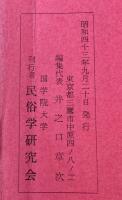 昭和四十三年九月二十日 発行
東京都三鷹市中原四ノ八ノ一
編集代表 井之口章次
国学院大学
発行者 民俗学研究会